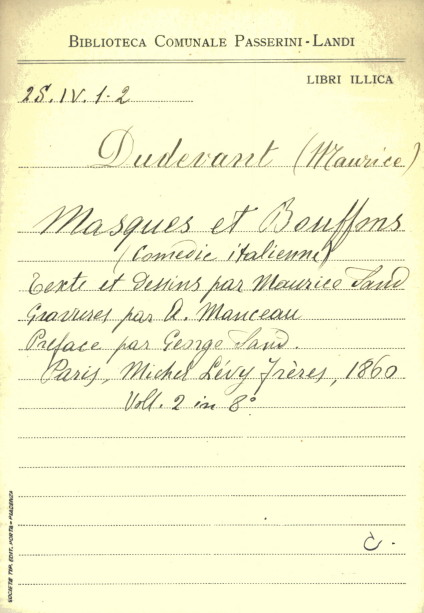 BIBLIOTECA COMUNALE PASSERINI-LANDI
LIBRI ILLICA
2S.IV.1-2
Dudevant (Maurice)
Masques et Bouffons
(Comédie italienne)
Texte et Dessins par Maurice Sand
Gravures par A. Manceau
Préface par George Sand.
Paris, Michel Lévy Frères, 1860
Voll. 2 in 8°
C.
SOCIETÀ TIP. EDIT. PORTA - PIACENZA